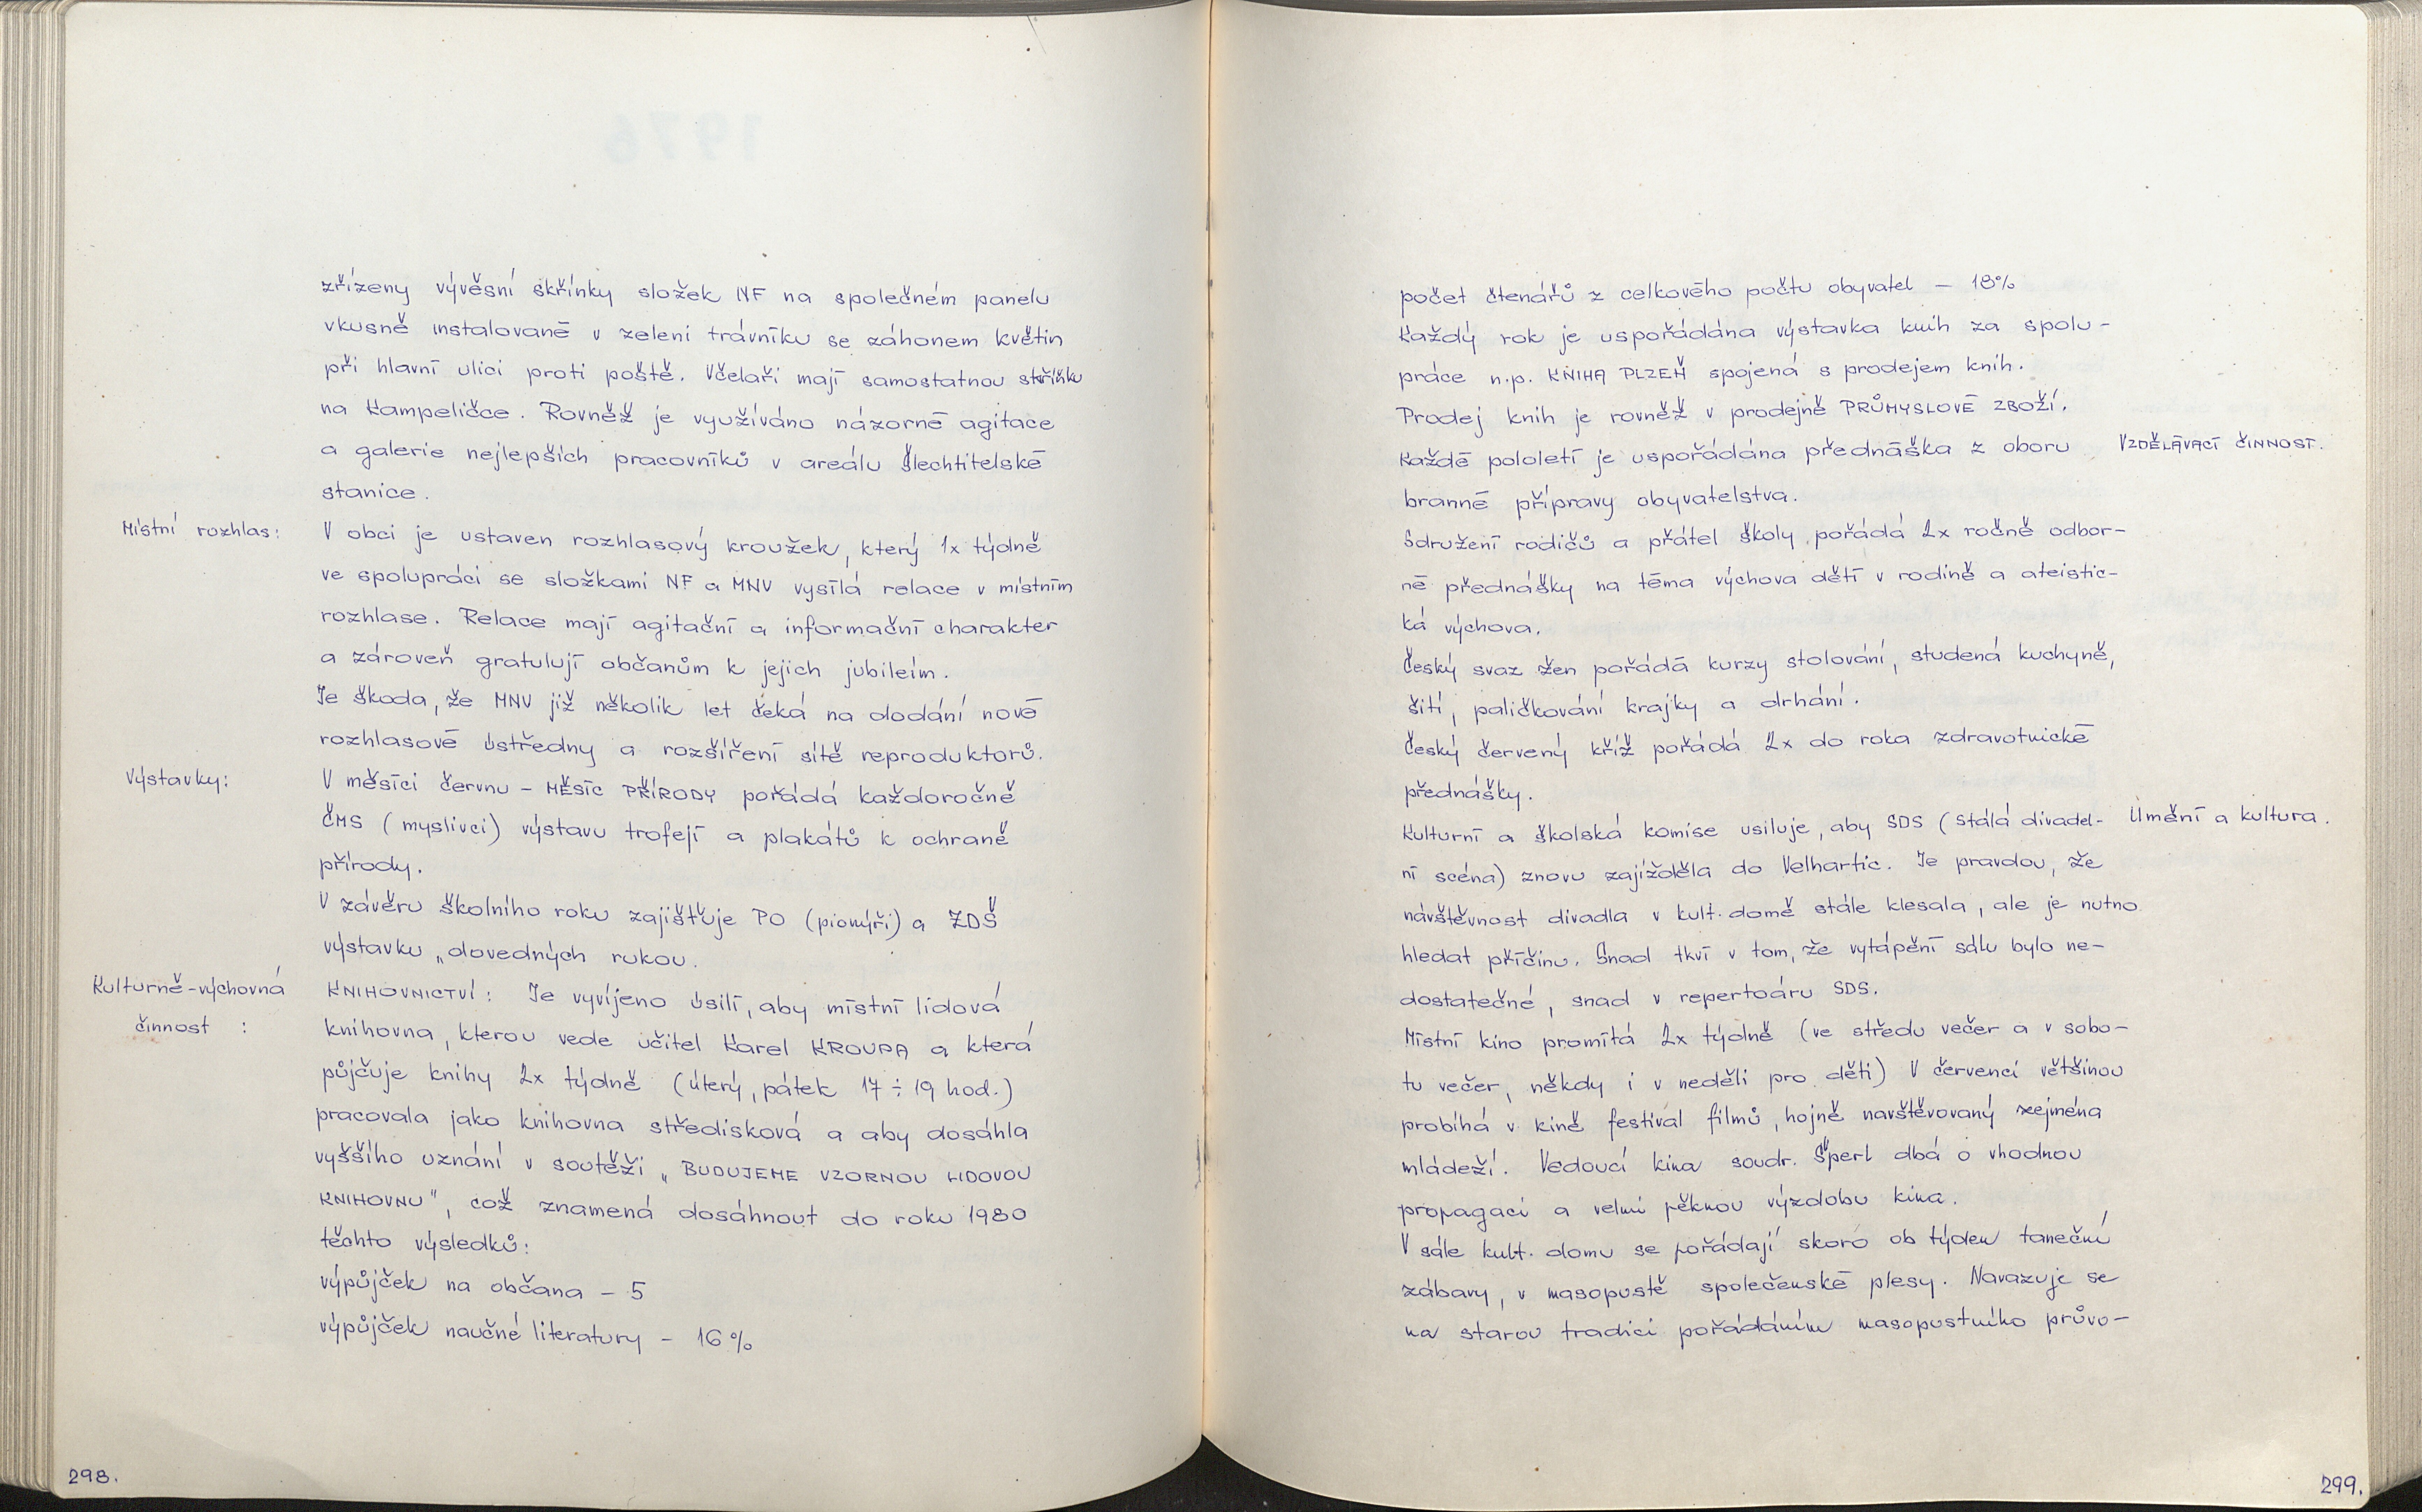 zřízeny vývěsní skřínky složek NF na společném panelu
vkusně instalované v zeleni trávníku se záhonem květin
při hlavní ulici proti poště. Včelaři mají samostatnou skříňku
na Kampeličce. Rovněž je využíváno názorné agitace
a galerie nejlepších pracovníků v areálu Šlechtitelské
stanice.
Místní rozhlas:
V obci je ustaven rozhlasový kroužek, který 1x týdně
ve spolupráci se složkami NF a MNV vysílá relace v místním
rozhlase. Relace mají agitační a informační charakter
a zároveň gratulují občanům k jejich jubileím.
Je škoda, že MNV již několik let čeká na dodání nové
rozhlasové ústředny a rozšíření sítě reproduktorů.
Výstavky:
V měsíci červnu - MĚSÍC PŘÍRODY pořádá každoročně
ČMS (myslivci) výstavu trofejí a plakátů k ochraně
přírody.
V závěru školního roku zajišťuje PO (pionýři) a ZDŠ
výstavku „dovedných rukou.
Kulturně-výchovná
činnost :
KNIHOVNICTVÍ: Je vyvíjeno úsilí, aby místní lidová
knihovna, kterou vede učitel Karel KROUPA a která
půjčuje knihy 2x týdně (úterý, pátek 17÷19 hod.)
pracovala jako knihovna středisková a aby dosáhla
vyššího uznání v soutěži „BUDUJEME VZORNOU LIDOVOU
KNIHOVNU", což znamená dosáhnout do roku 1980
těchto výsledků:
výpůjček na občana - 5
výpůjček naučné literatury - 16%
298.
počet čtenářů z celkového počtu obyvatel - 18%
Každý rok je uspořádána výstavka knih za spolu-
práce n.p. KNIHA PLZEŇ spojená s prodejem knih.
Prodej knih je rovněž v prodejně PRŮMYSLOVÉ ZBOŽÍ.
Každé pololetí je uspořádána přednáška z oboru
VZDĚLÁVACÍ ČINNOST.
branné přípravy obyvatelstva.
Sdružení rodičů a přátel školy pořádá 2x ročně odbor-
né přednášky na téma výchova dětí v rodině a ateistic-
ká výchova.
Český svaz žen pořádá kurzy stolování, studená kuchyně,
šití, paličkování krajky a drhání.
Český červený kříž pořádá 2x do roka zdravotnické
přednášky.
Kulturní a školská komise usiluje, aby SDS (stálá divadel-
Umění a kultura.
ní scéna) znovu zajížděla do Velhartic. Je pravdou, že
návštěvnost divadla v kult. domě stále klesala, ale je nutno
hledat příčinu. Snad tkví v tom, že vytápění sálu bylo ne-
dostatečné, snad v repertoáru SDS.
Místní kino promítá 2x týdně (ve středu večer a v sobo-
tu večer, někdy i v neděli pro děti) V červenci většinou
probíhá v kině festival filmů, hojně navštěvovaný zejména
mládeží. Vedoucí kina soudr. Šperl dbá o vhodnou
propagaci a velmi pěknou výzdobu kina.
V sále kult. domu se pořádají skoro ob týden taneční
zábavy, v masopustě společenské plesy. Navazuje se
na starou tradici pořádáním masopustního průvo-
299.